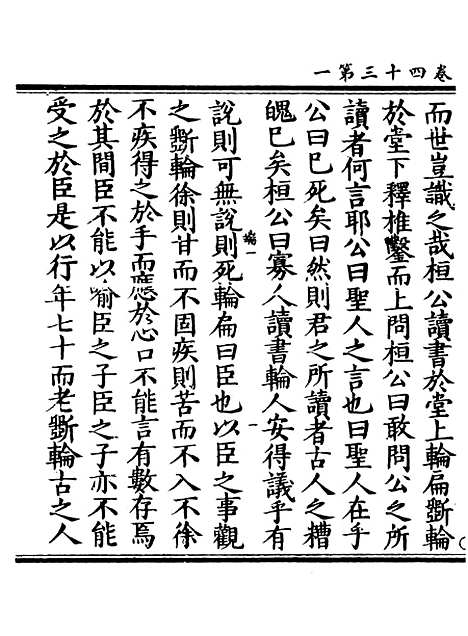 卷四十三第一
而世豈識之哉桓公讀書於堂上輪扁斵輪
於堂下釋椎鑿而上問桓公曰敢問公之所
讀者何言耶公曰聖人之言也曰聖人在乎
公曰已死矣曰然則君之所讀者古人之糟
魄已矣桓公曰寡人讀書輪人安得議乎有
說則可無說則死輪扁曰臣也以臣之事觀
之斵輪徐則甘而不固疾則苦而不入不徐
不疾得之於手而應於心口不能言有數存焉
於其間臣不能以喻臣之子臣之子亦不能
受之於臣是以行年七十而老斵輪古之人